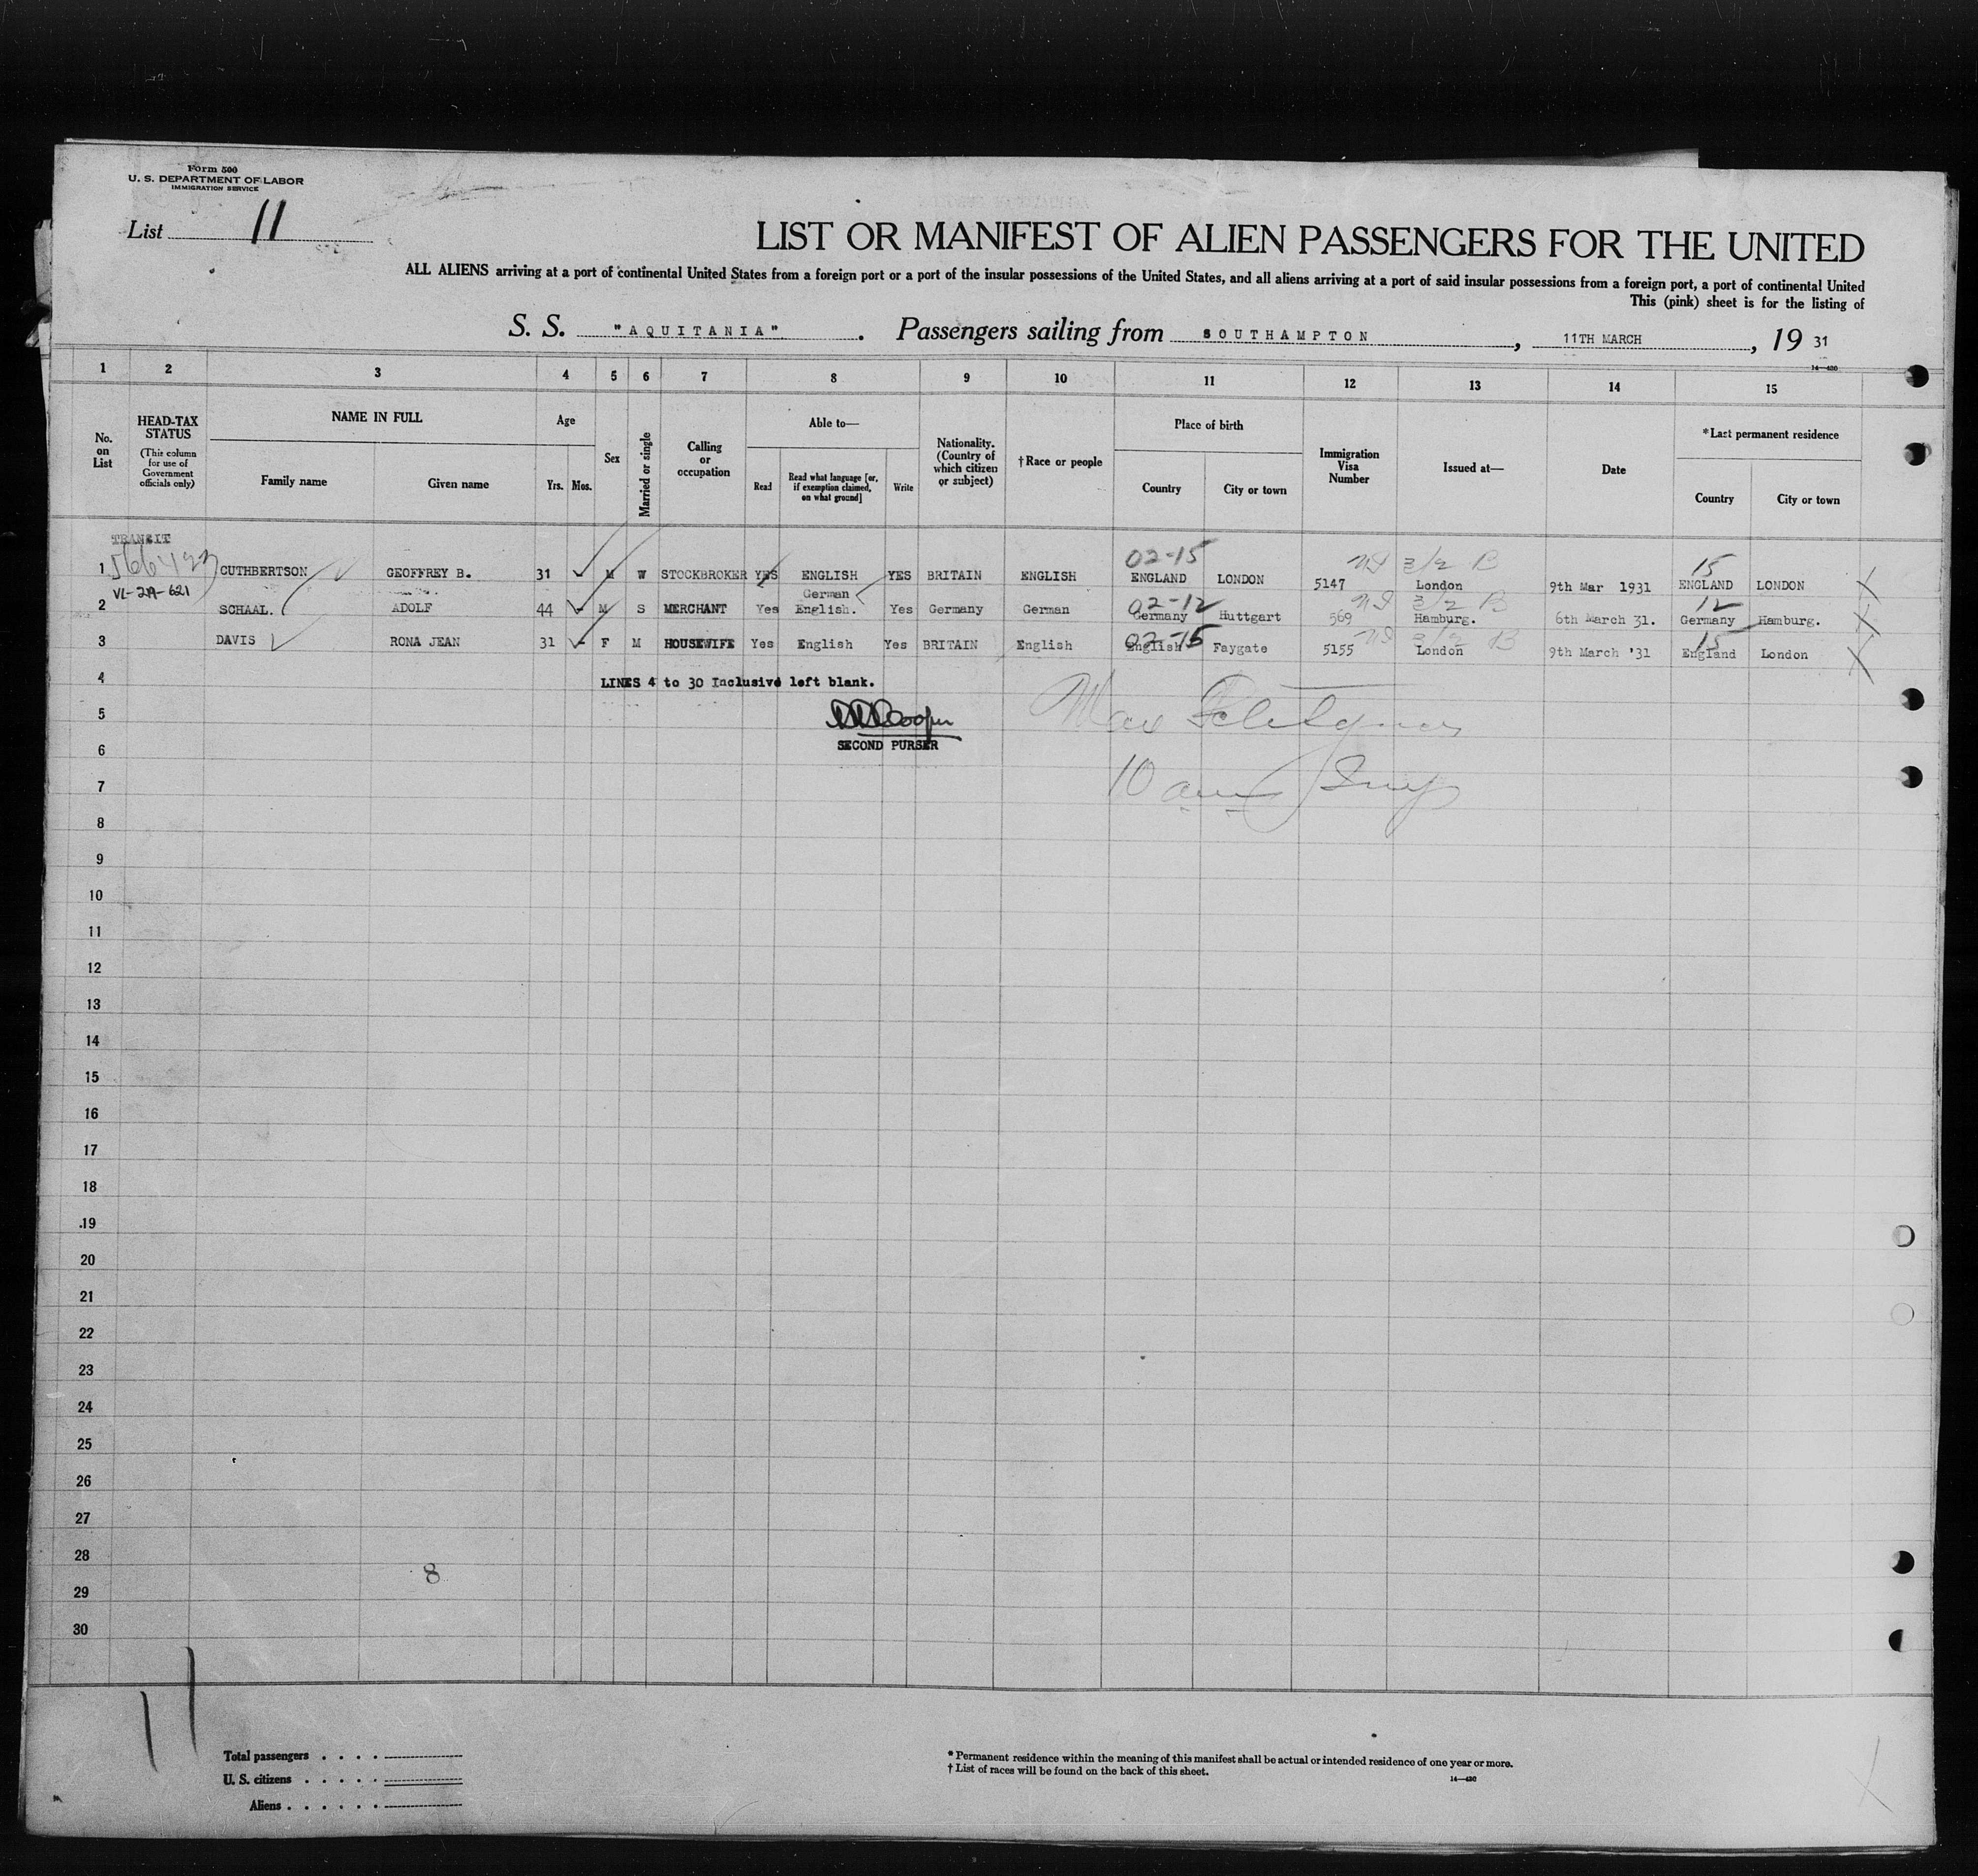 Form 500
U. S. DEPARTMENT OF LABOR
IMMIGRATION SERVICE
List 11
LIST OR MANIFEST OF ALIEN PASSENGERS FOR THE UNITED
ALL ALIENS arriving at a port of continental United States from a foreign port or a port of the insular possessions of the United States, and all aliens arriving at a port of said insular possessions from a foreign port, a port of continental United
This (pink) sheet is for the listing of
S. S. "AQUITANIA". Passengers sailing from SOUTHAMPTON, 11TH MARCH, 19 31
14—430
1 2 3 4 5 6 7 8 9 10 11 12 13 14 15
No. on List
HEAD-TAX STATUS
(This column for use of Government officials only)
NAME IN FULL
Family name Given name
Age
Yrs. Mos.
Sex
Married or single
Calling or occupation
Able to—
Read
Read what language [or, if exemption claimed, on what ground]
Write
Nationality. (Country of which citizen or subject)
†Race or people
Place of birth
Country City or town
Immigration Visa Number
Issued at—
Date
*Last permanent residence
Country City or town
TRANSIT
02-15 15
1 CUTHBERTSON GEOFFREY B. 31 - M W STOCKBROKER YES ENGLISH YES BRITAIN ENGLISH ENGLAND LONDON 5147 London 9th Mar 1931 ENGLAND LONDON
VL-2A-621
German
02-12 12
2 SCHAAL. ADOLF 44 - M S MERCHANT Yes English. Yes Germany German Germany Huttgart 569 Hamburg. 6th March 31. Germany Hamburg.
02-15 15
3 DAVIS RONA JEAN 31 - F M HOUSEWIFE Yes English Yes BRITAIN English English Faygate 5155 London 9th March '31 England London
4 LINES 4 to 30 Inclusive left blank.
5
Cooper
6 SECOND PURSER
7
10 am
8
9
10
11
12
13
14
15
16
17
18
19
20
21
22
23
24
25
26
27
28
8
29
30
11
Total passengers . . . .
U. S. citizens . . . . .
Aliens . . . . . .
* Permanent residence within the meaning of this manifest shall be actual or intended residence of one year or more.
† List of races will be found on the back of this sheet.
14—430